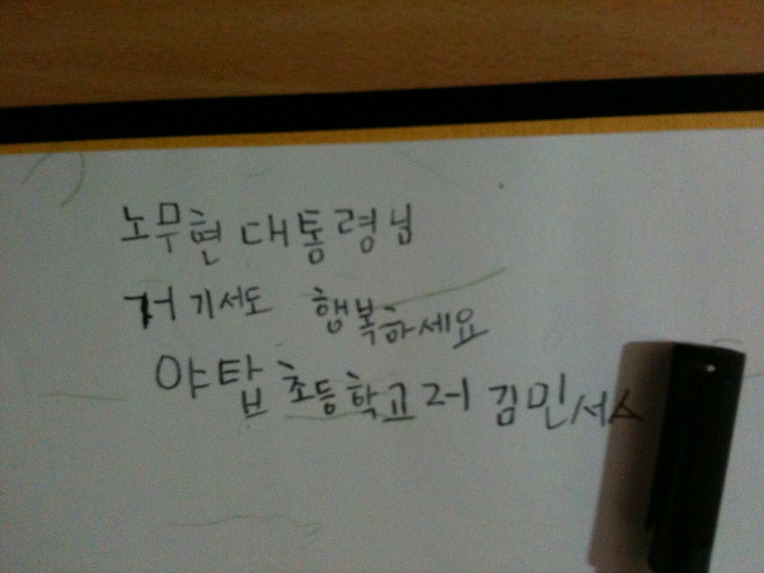 노무현 대통령님
거기서도 행복하세요
야탑초등학교 2-1 김민서